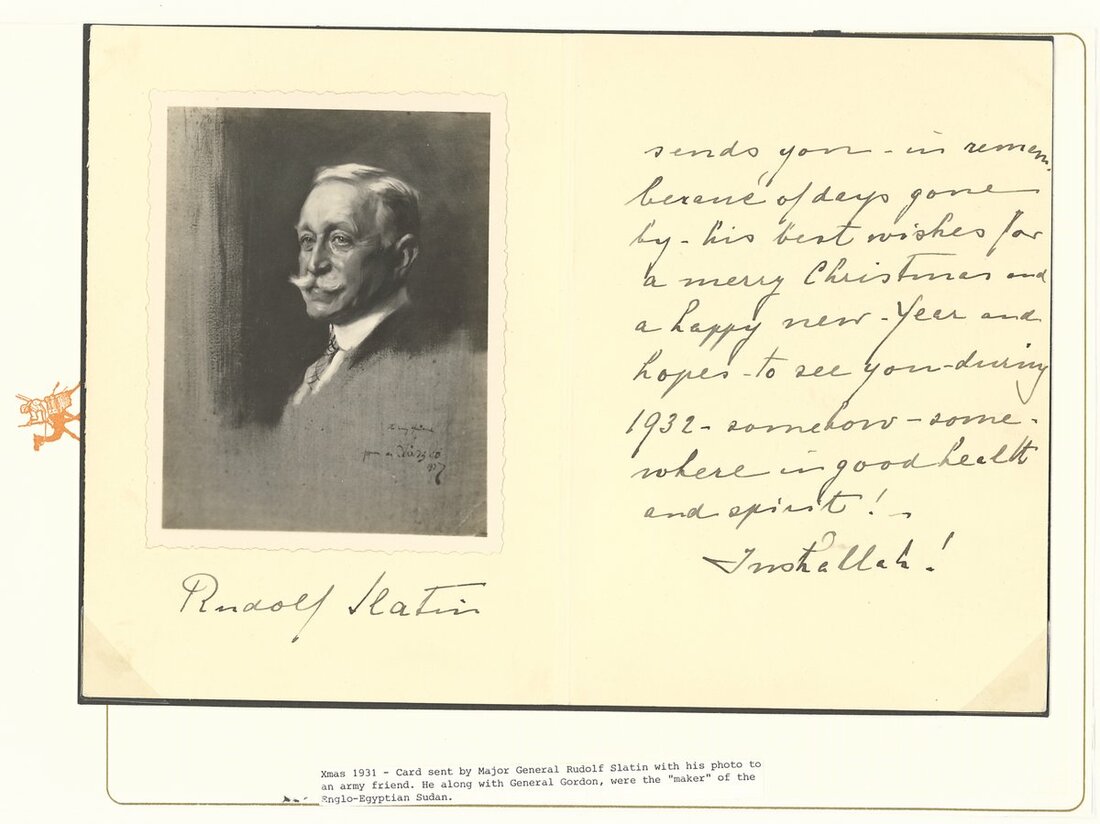 to my friend
László
1927
Rudolf Slatin
sends you - in remem-
berance of days gone
by - his best wishes for
a merry Christmas and
a happy new - Year and
hopes - to see you - during
1932 - somehow - some-
where in good health
and spirit! -
Inshallah!
Xmas 1931 - Card sent by Major General Rudolf Slatin with his photo to
an army friend. He along with General Gordon, were the "maker" of the
Englo-Egyptian Sudan.